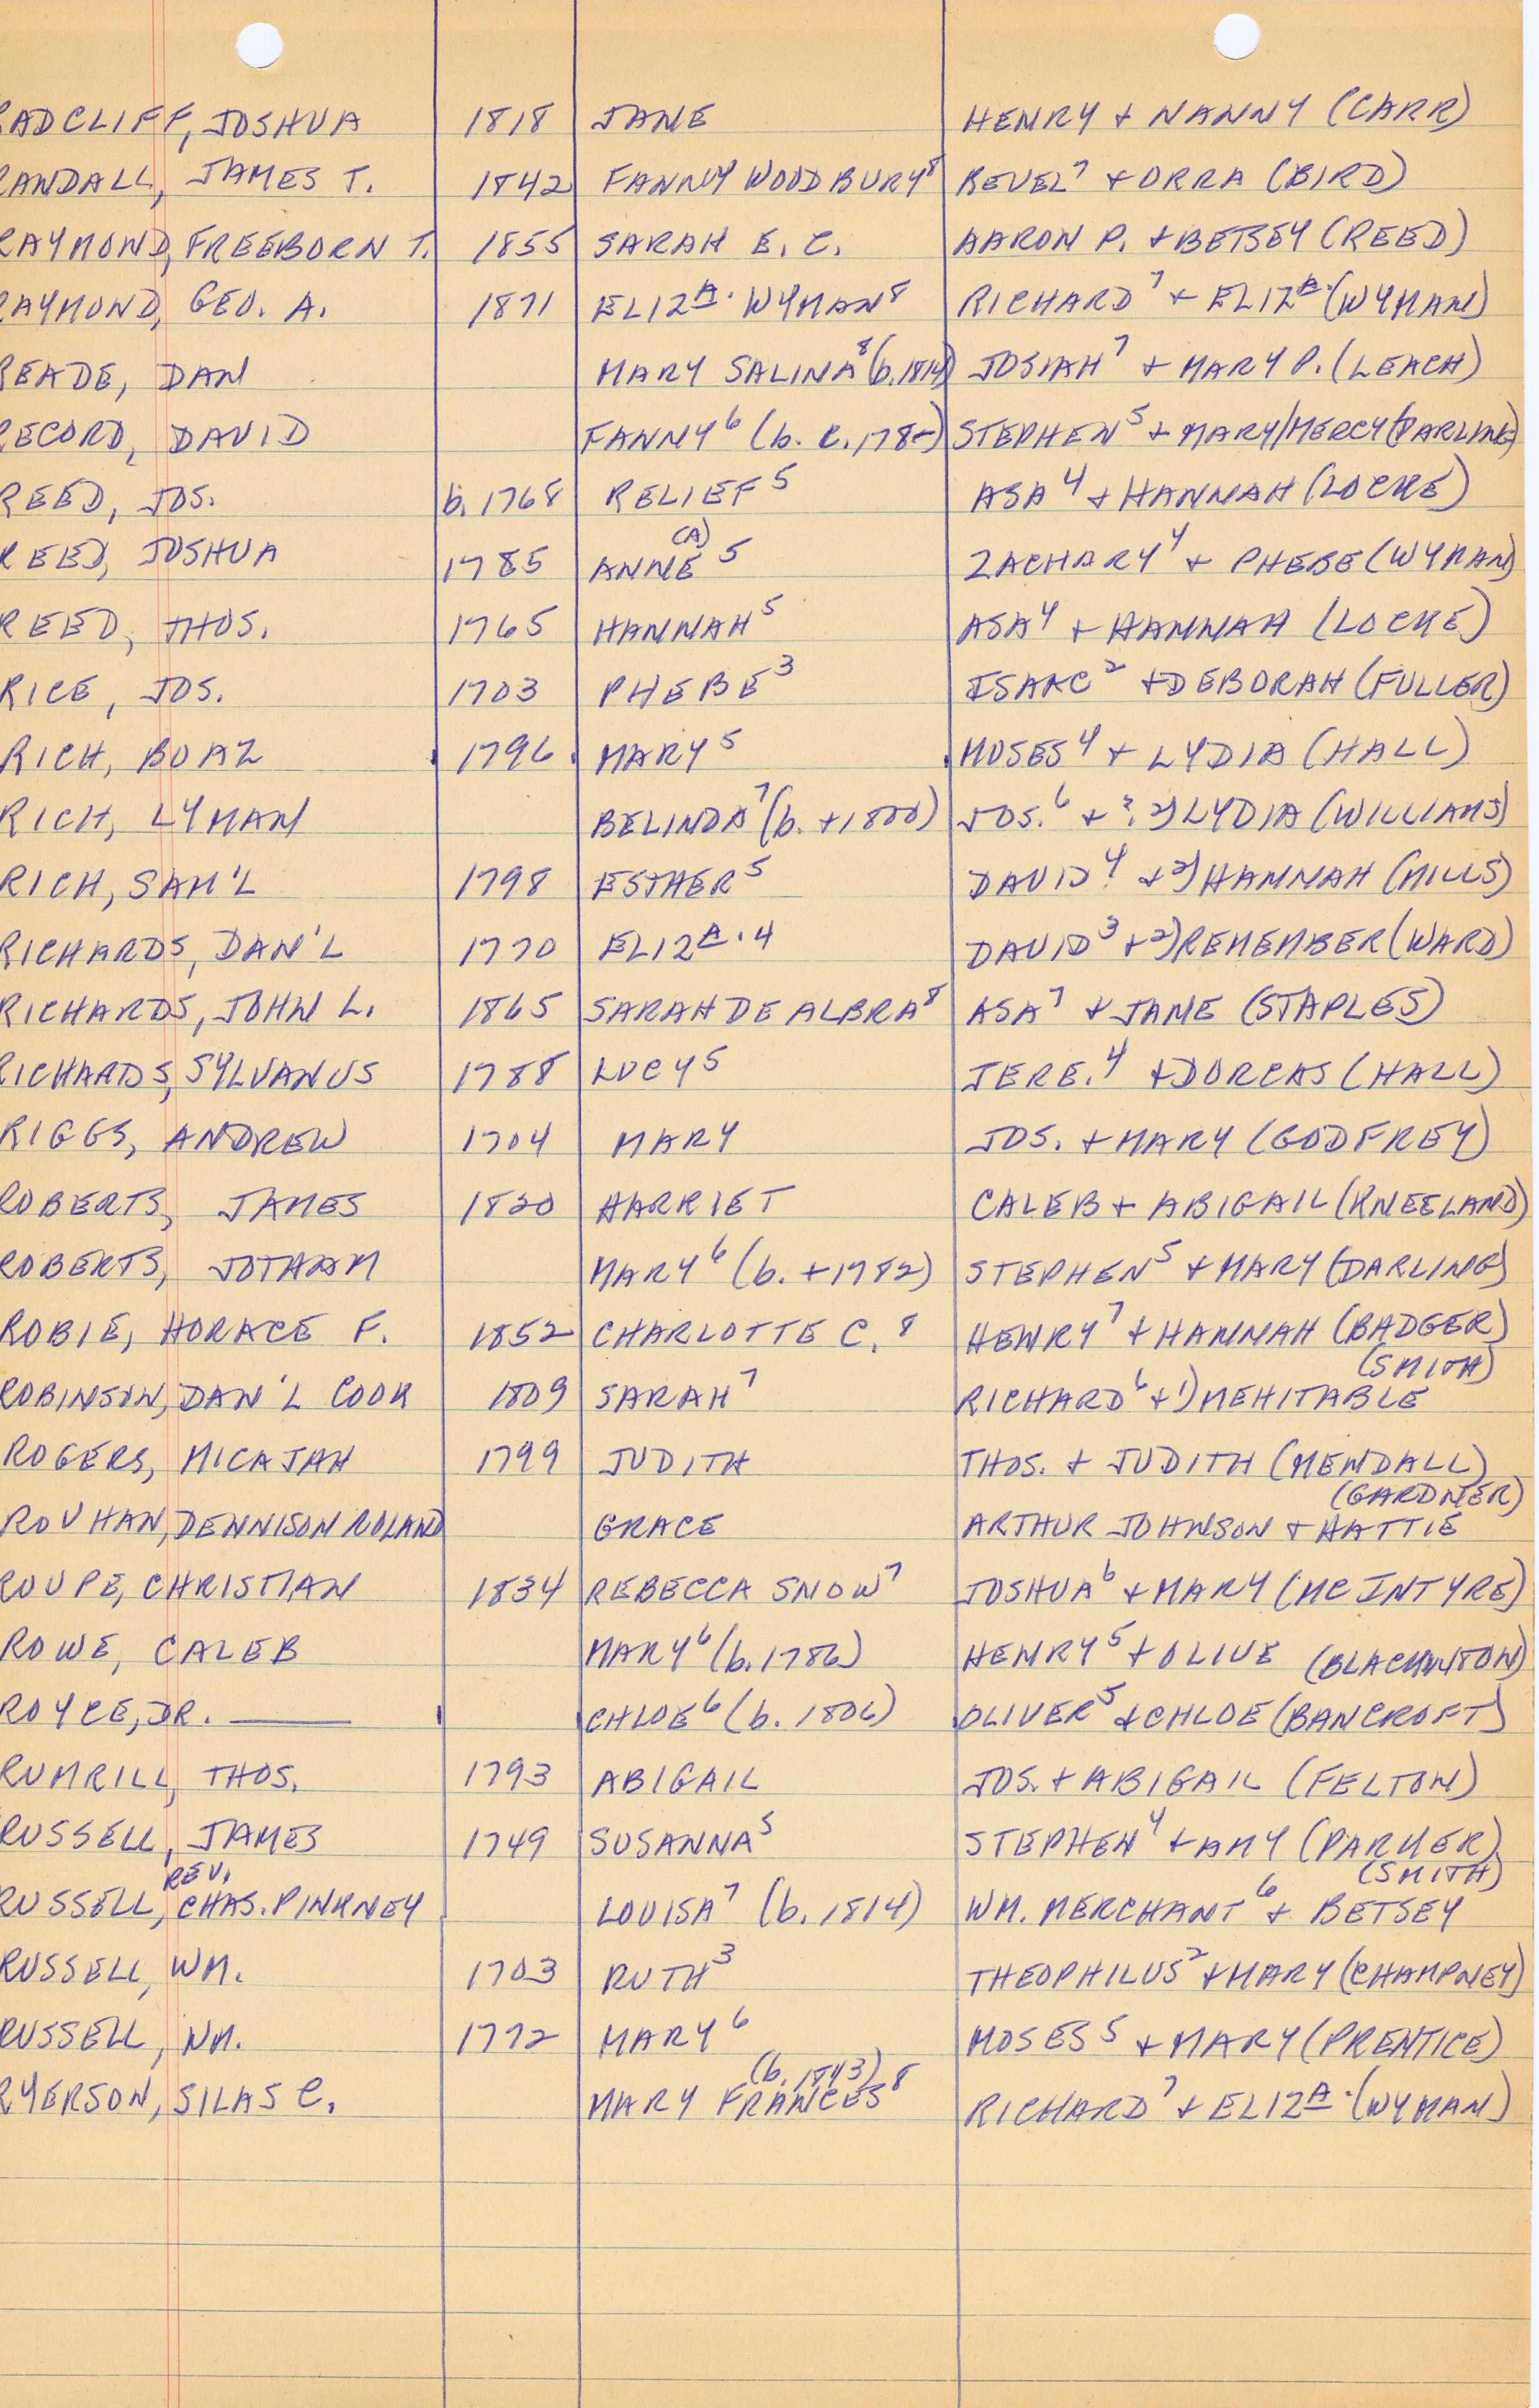 RADCLIFF, JOSHUA 1818 JANE HENRY + NANNY (CARR)
RANDALL, JAMES T. 1842 FANNY WOODBURY⁸ REUEL⁷ + ORRA (BIRD)
RAYMOND, FREEBORN T. 1855 SARAH E. C. AARON P. + BETSEY (REED)
RAYMOND, GEO. A. 1871 ELIZA. WYMAN⁸ RICHARD⁷ + ELIZA. (WYMAN)
READE, DAN MARY SALINA⁸ (b. 1814) JOSIAH⁷ + MARY P. (LEACH)
RECORD, DAVID FANNY⁶ (b. c. 178-) STEPHEN⁵ + MARY/MERCY (DARLING)
REED, JOS. b. 1768 RELIEF⁵ ASA⁴ + HANNAH (LOCKE)
(A)
REED, JOSHUA 1785 ANNE⁵ ZACHARY⁴ + PHEBE (WYMAN)
REED, THOS. 1765 HANNAH⁵ ASA⁴ + HANNAH (LOCKE)
RICE, JOS. 1703 PHEBE³ ISAAC² + DEBORAH (FULLER)
RICH, BOAZ 1796 MARY⁵ MOSES⁴ + LYDIA (HALL)
RICH, LYMAN BELINDA⁷ (b. +1800) JOS.⁶ + ? 2) LYDIA (WILLIAMS)
RICH, SAM'L 1798 ESTHER⁵ DAVID⁴ + 2) HANNAH (MILLS)
RICHARDS, DAN'L 1770 ELIZA.⁴ DAVID³ + 2) REMEMBER (WARD)
RICHARDS, JOHN L. 1865 SARAH DE ALBRA⁸ ASA⁷ + JANE (STAPLES)
RICHARDS, SYLVANUS 1788 LUCY⁵ JERE.⁴ + DORCAS (HALL)
RIGGS, ANDREW 1704 MARY JOS. + MARY (GODFREY)
ROBERTS, JAMES 1820 HARRIET CALEB + ABIGAIL (KNEELAND)
ROBERTS, JOTHAM MARY⁶ (b. +1782) STEPHEN⁵ + MARY (DARLING)
ROBIE, HORACE F. 1852 CHARLOTTE C.⁸ HENRY⁷ + HANNAH (BADGER)
(SMITH)
ROBINSON, DAN'L COOK 1809 SARAH⁷ RICHARD⁶ + 1) MEHITABLE
ROGERS, MICAJAH 1799 JUDITH THOS. + JUDITH (MENDALL)
(GARDNER)
ROUHAN, DENNISON ROLAND GRACE ARTHUR JOHNSON + HATTIE
ROUPE, CHRISTIAN 1834 REBECCA SNOW⁷ JOSHUA⁶ + MARY (MCINTYRE)
ROWE, CALEB MARY⁶ (b. 1786) HENRY⁵ + OLIVE (BLACKINTON)
ROYCE, DR. —— CHLOE⁶ (b. 1806) OLIVER⁵ + CHLOE (BANCROFT)
RUMRILL, THOS. 1793 ABIGAIL JOS. + ABIGAIL (FELTON)
RUSSELL, JAMES 1749 SUSANNA⁵ STEPHEN⁴ + AMY (PARKER)
REV. (SMITH)
RUSSELL, CHAS. PINKNEY LOUISA⁷ (b. 1814) WM. MERCHANT⁶ + BETSEY
RUSSELL, WM. 1703 RUTH³ THEOPHILUS² + MARY (CHAMPNEY)
RUSSELL, WM. 1772 MARY⁶ MOSES⁵ + MARY (PRENTICE)
(b. 1843)
RYERSON, SILAS C. MARY FRANCES⁸ RICHARD⁷ + ELIZA. (WYMAN)